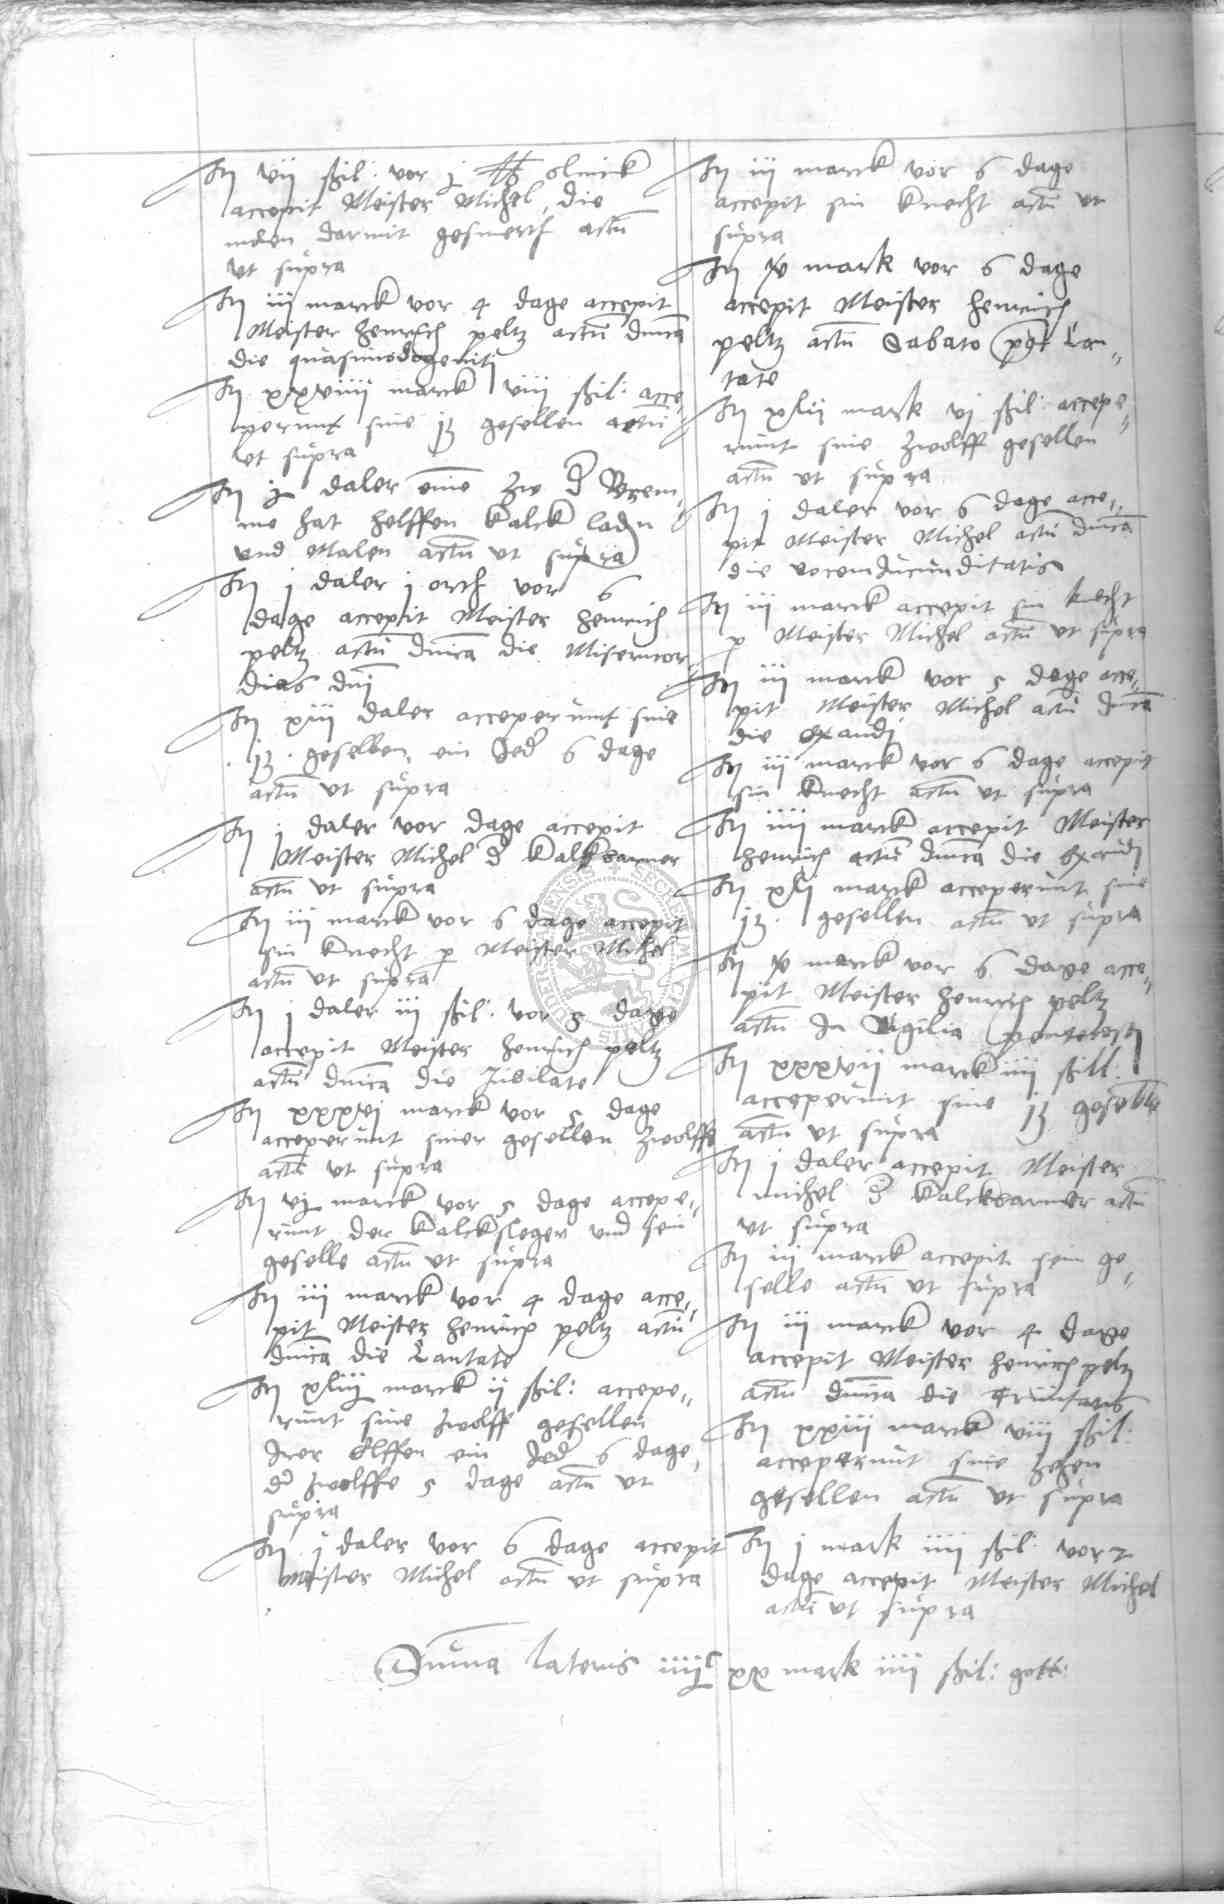 It vij ßil: vor j ℔ olnick
accepit Meister Michel, die
darmit gesmert actū
vt supra
It iij marck vor 4 dage accepit
Meister Henrich peltz actū dnica
die quasimodogeniti
It xxviiij marck viij ßil: acce„
perunt sine jz gesellen actū
vt supra
It j daler eine zw d
me hat helffen kalck ladn
vnd Malen actū vt supra
It j daler j ort vor 6
dage accepit Meister Henrich
peltz actū dnica die Misericor„
dias dnj
It xiij daler acceperunt sine
jz gesellen, ein Jedr 6 dage
actū vt supra
It j daler vor dage accepit
Meister Michel dr kalkbarner
actū vt supra
It iij marck vor 6 dage accepit
sin knecht p Meister Michel
actū vt supra
It j daler iij ßil: vor 5 dage
accepit Meister Henrich peltz
actū dnica die Jubilate
It xxxvj marck vor 5 dage
acceperunt siner gesellen zwolffe
actū vt supra
It vj marck vor 5 dage accepe„
runt der kalcksleger vnd sein
geselle actū vt supra
It iij marck vor 4 dage acce„
pit Meister Henrich peltz actū
dnica die Cantate
It xliij marck ij ßil: accepe„
runt sine zwolff gesellen
Irer Elffen ein Jedr 6 dage,
dr zwolffe 5 dage actū vt
supra
It j daler vor 6 dage accepit
meister Michel actū vt supra
It iij marck vor 6 dage
accepit sin knecht actū vt
supra
It v mark vor 6 dage
accepit Meister Henrich
peltz actū Sabato post Can„
tate
It xlij mark vj ßil: accepe„
runt sine zwolff gesellen
actū vt supra
It j daler vor 6 dage acce„
pit Meister Michel actū dnica
die vocem Jucunditatis
It iij marck accepit sin knecht
p Meister Michel actū vt supra
It iij marck vor 5 dage acce„
pit Meister Michel actū dnica
die exaudj
It iij marck vor 6 dage accepit
sin knecht actū vt supra
It iiij marck accepit Meister
Henrich actū dnica die exaudj
It xlj marck acceperunt sine
jz gesellen actū vt supra
It v marck vor 6 dage acce„
pit Meister Henrich peltz
actū In Vigilia pentecostj
It xxxvij marck iiij ßill:
acceperunt sine jz gesellen
actū vt supra
It j daler accepit Meister
michel dr kalckbarner actū
vt supra
It iij marck accepit sein ge„
selle actū vt supra
It iij marck vor 4 dage
accepit Meister Henrich peltz
actū dnica die Trinitatis
It xxiij marck viij ßil:
acceperunt sine zehen
gesellen actū vt supra
It j mark iiij ßil: vor 2
dage accepit Meister Michel
actū vt supra
Suma lateris iiijC xx mark iiij ßil: gott: